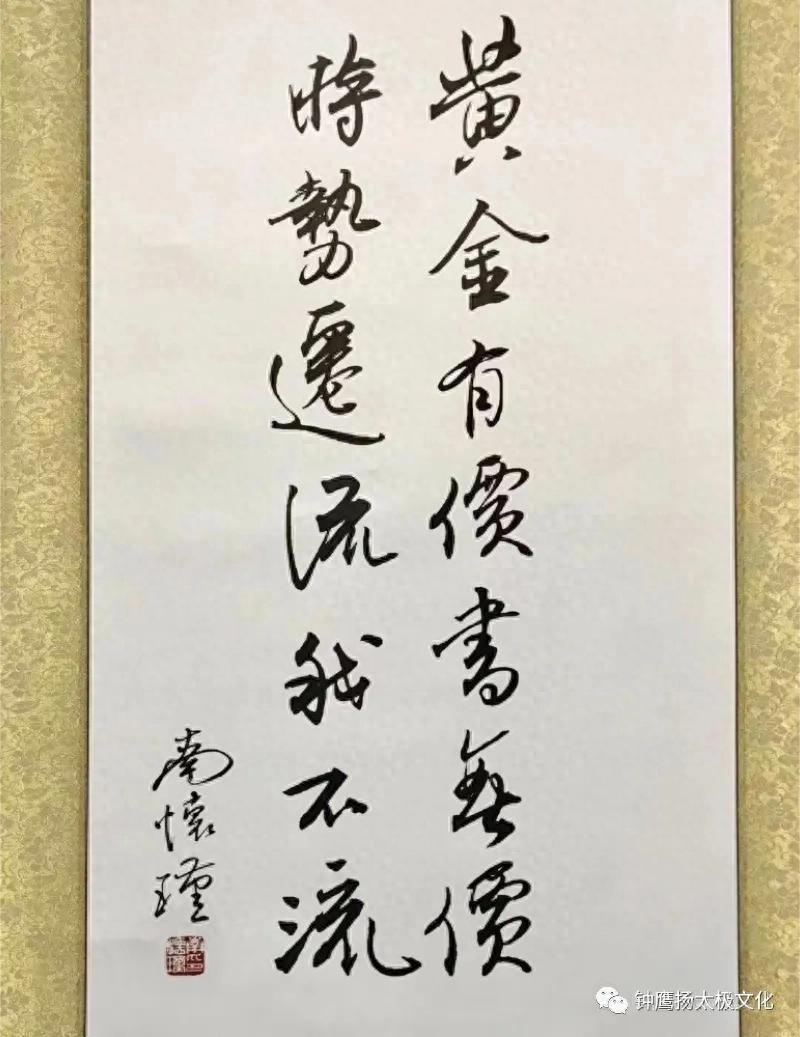 黄金有價書無價
時勢遷流我不流
南懷瑾
钟鹰扬太极文化